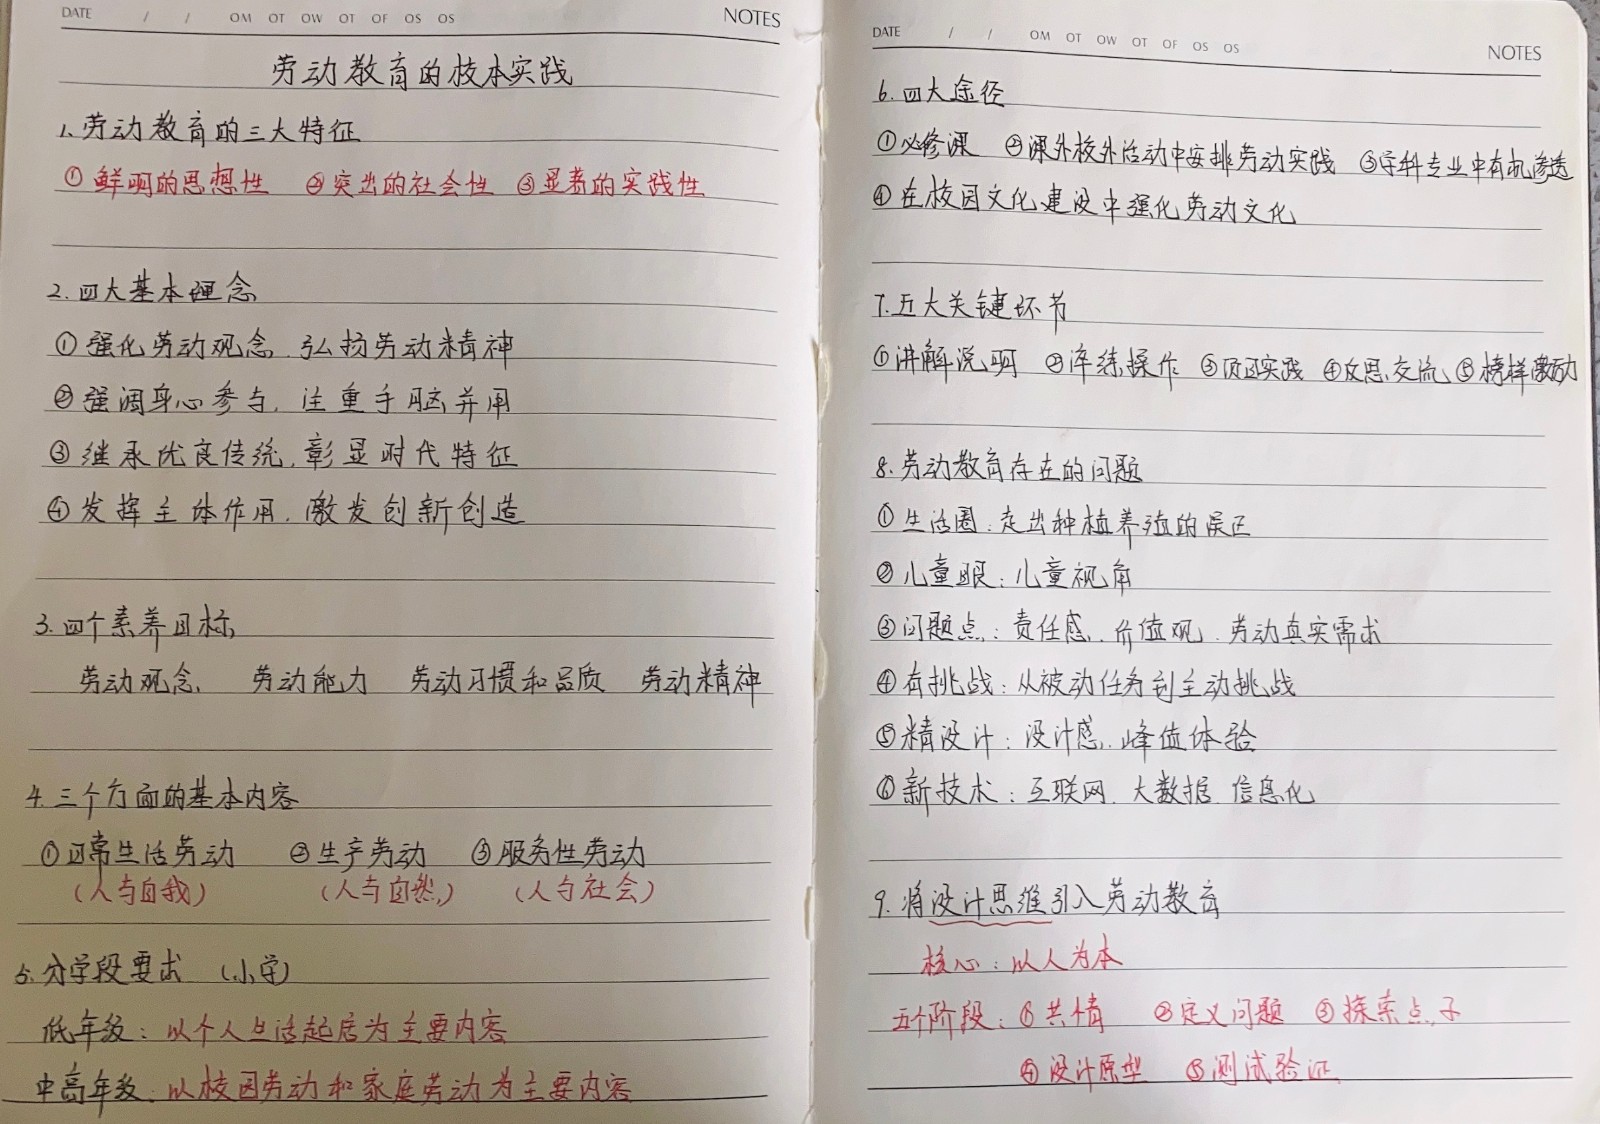 DATE / / OM OT OW OT OF OS OS NOTES
劳动教育的校本实践
1、劳动教育的三大特征
①鲜明的思想性 ②突出的社会性 ③显著的实践性
2.四大基本理念
①强化劳动观念.弘扬劳动精神
②强调身心参与.注重手脑并用
③继承优良传统.彰显时代特征
④发挥主体作用.激发创新创造
3.四个素养目标
劳动观念 劳动能力 劳动习惯和品质 劳动精神
4.三个方面的基本内容
①日常生活劳动 ②生产劳动 ③服务性劳动
(人与自我) (人与自然) (人与社会)
5.分学段要求 (小学)
低年级:以个人生活起居为主要内容
中高年级:以校园劳动和家庭劳动为主要内容
DATE / / OM OT OW OT OF OS OS NOTES
6.四大途径
①必修课 ②课外校外活动中安排劳动实践 ③学科专业中有机渗透
④在校园文化建设中强化劳动文化
7.五大关键环节
①讲解说明 ②淬练操作 ③项目实践 ④反思交流 ⑤榜样激励
8.劳动教育存在的问题
①生活圈:走出种植养殖的误区
②儿童眼:儿童视角
③问题点:责任感.价值观.劳动真实需求
④有挑战:从被动任务到主动挑战
⑤精设计:设计感.峰值体验
⑥新技术:互联网.大数据.信息化
9.将设计思维引入劳动教育
核心:以人为本
五个阶段:①共情 ②定义问题 ③探索点子
④设计原型 ⑤测试验证